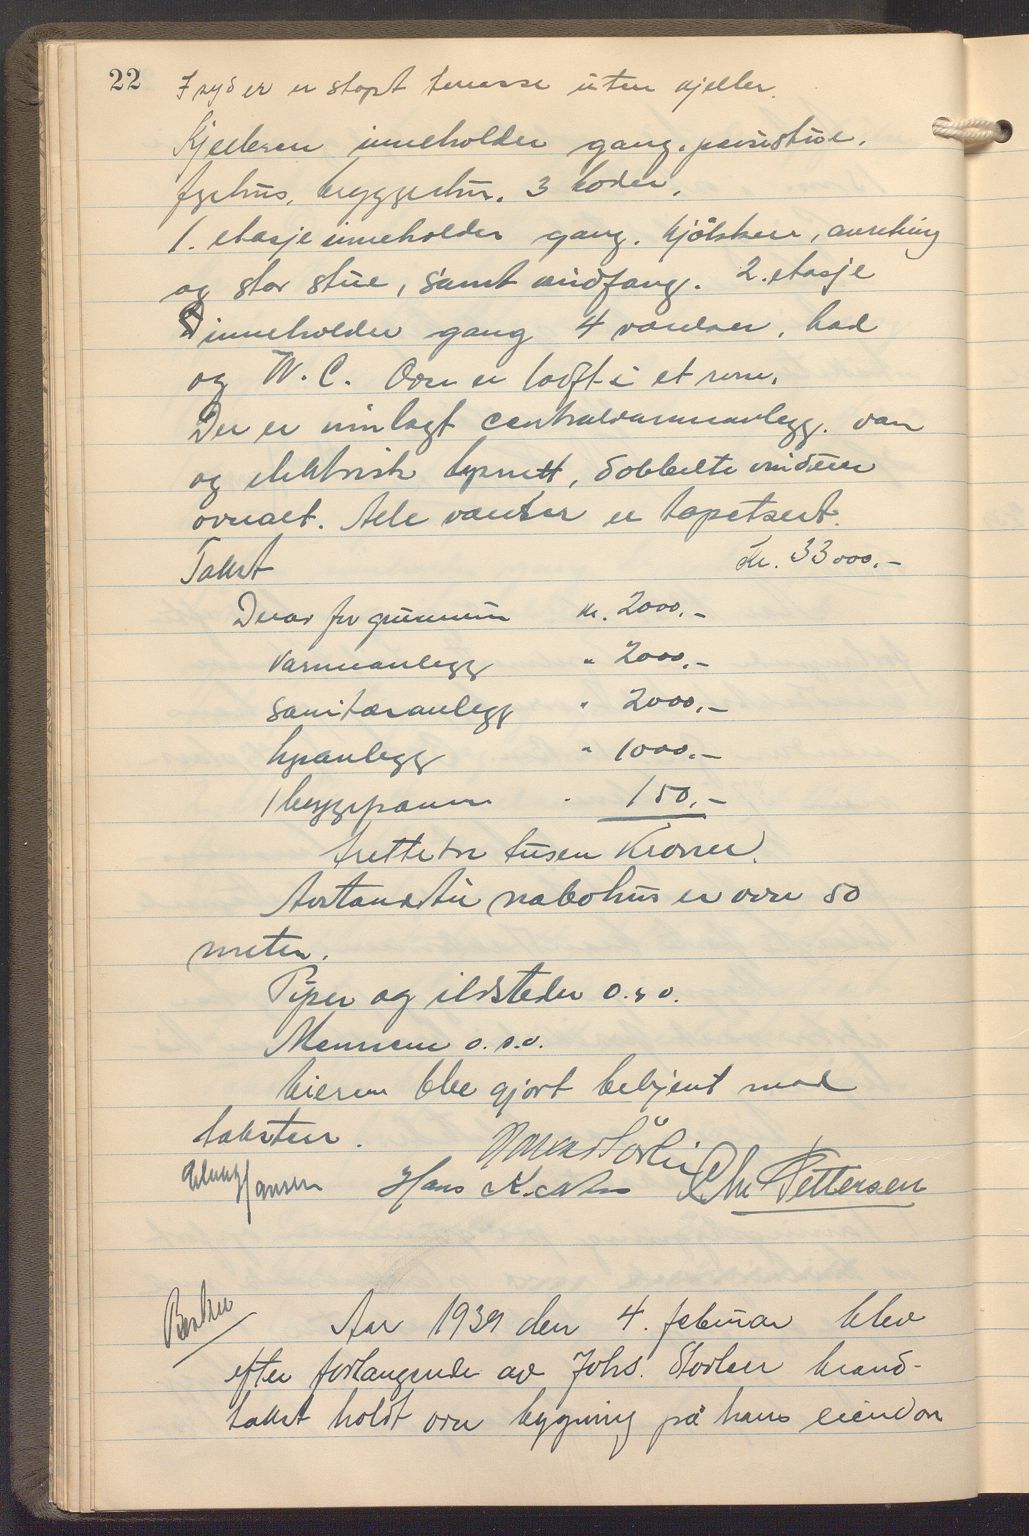 22
I syd er en støpt terrasse uten kjeller.
Kjelleren inneholder gang, peisestue,
fyrhus, bryggerhus, 3 boder.
1. etasje inneholder gang, kjøkken, anretning
og stor stue, samt vindfang. 2. etasje
inneholder gang 4 værelser, bad
og W.C. Over er loft i et rum.
Der er innlagt centralvarmeanlegg, vann
og elektrisk lysnett, dobbelte vinduer
overalt. Alle vægger er tapetsert.
Takst Kr. 33000.-
Derav for grunnmur kr. 2000.-
varmeanlegg " 2000.-
sanitæranlegg " 2000.-
lysanlegg " 1000.-
1 bryggepanne " 150.-
trettitre tusen Kroner.
Avstand til nabohus er over 50
meter.
Piper og ildsteder o.s.v.
Mennene o.s.v.
Eieren blev gjort bekjent med
taksten.
Hansen Hans K. Chr Pettersen
Aar 1939 den 4. februar blev
efter forlangende av Johs. Storlien brand-
takst holdt over bygning på hans eiendom